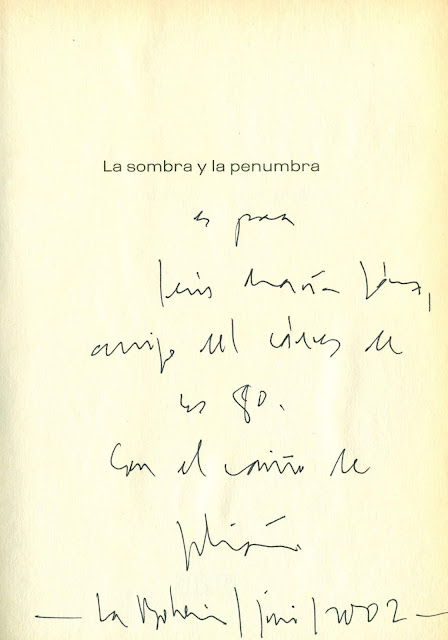 La sombra y la penumbra
es para
Luis María Sánz,
amigo del Cáceres de
los 80.
Con el cariño de
Julián
— La Bohemia / junio / 2002 —